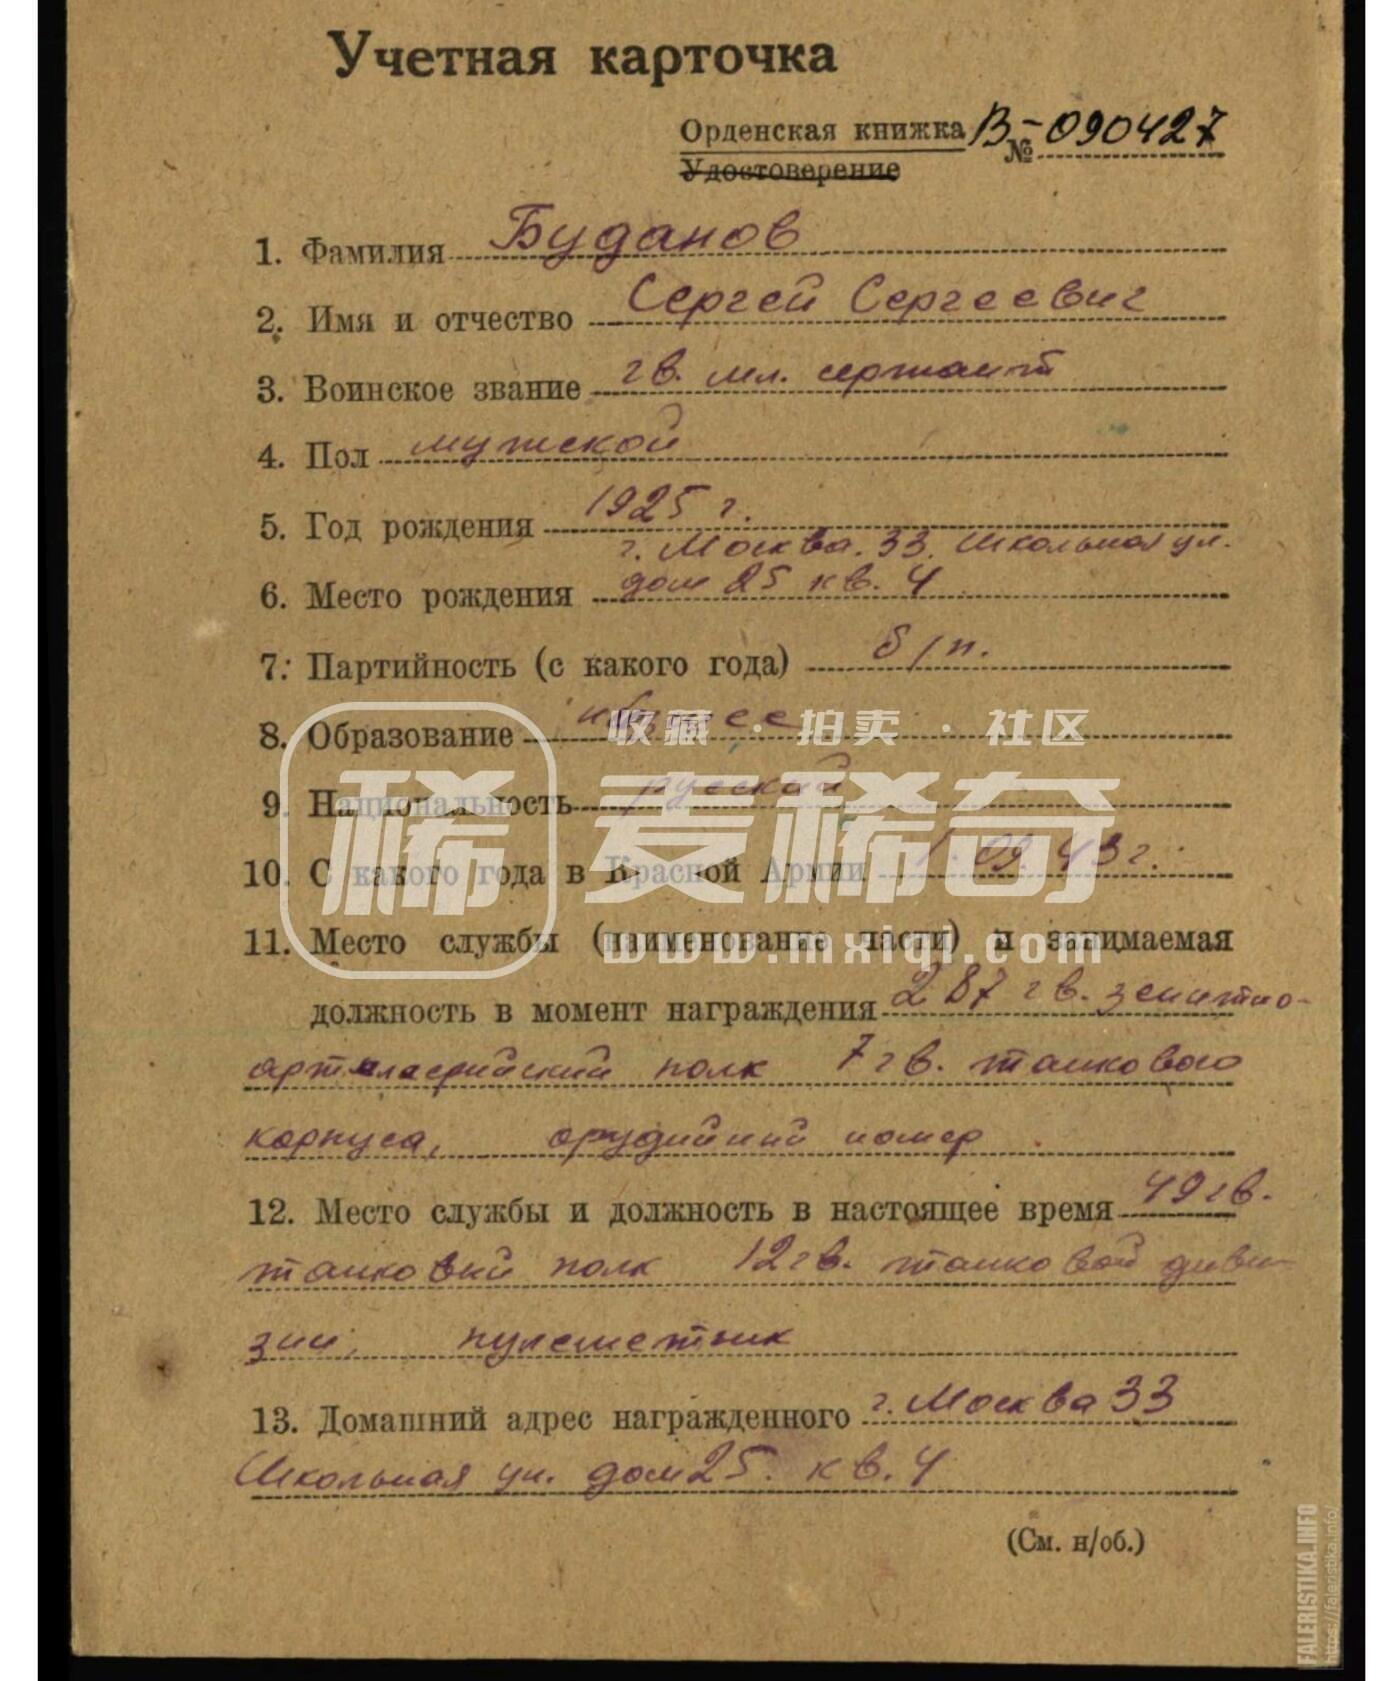 Учетная карточка
Орденская книжка В-№ 090427
Удостоверение
1. Фамилия Буданов
2. Имя и отчество Сергей Сергеевич
3. Воинское звание гв. мл. сержант
4. Пол мужской
5. Год рождения 1925 г.
г. Москва. 33. Школьная ул.
6. Место рождения дом 25 кв. 4
7. Партийность (с какого года) б/п.
收藏 · 拍卖 · 社区
8. Образование
9. Национальность русский
稀 麦稀奇
10. С какого года в Красной Армии 1.09.43 г.
11. Место службы (наименование части) и занимаемая
www.mxiqi.com
должность в момент награждения 287 гв. зенитно-
артиллерийский полк 7 гв. танкового
корпуса, орудийний номер
12. Место службы и должность в настоящее время 49 гв.
танковий полк 12 гв. танковой диви-
зии, пулеметчик
13. Домашний адрес награжденного г. Москва 33
Школьная ул. дом 25. кв. 4
(См. н/об.)
FALERISTIKA.INFO
https://faleristika.info/